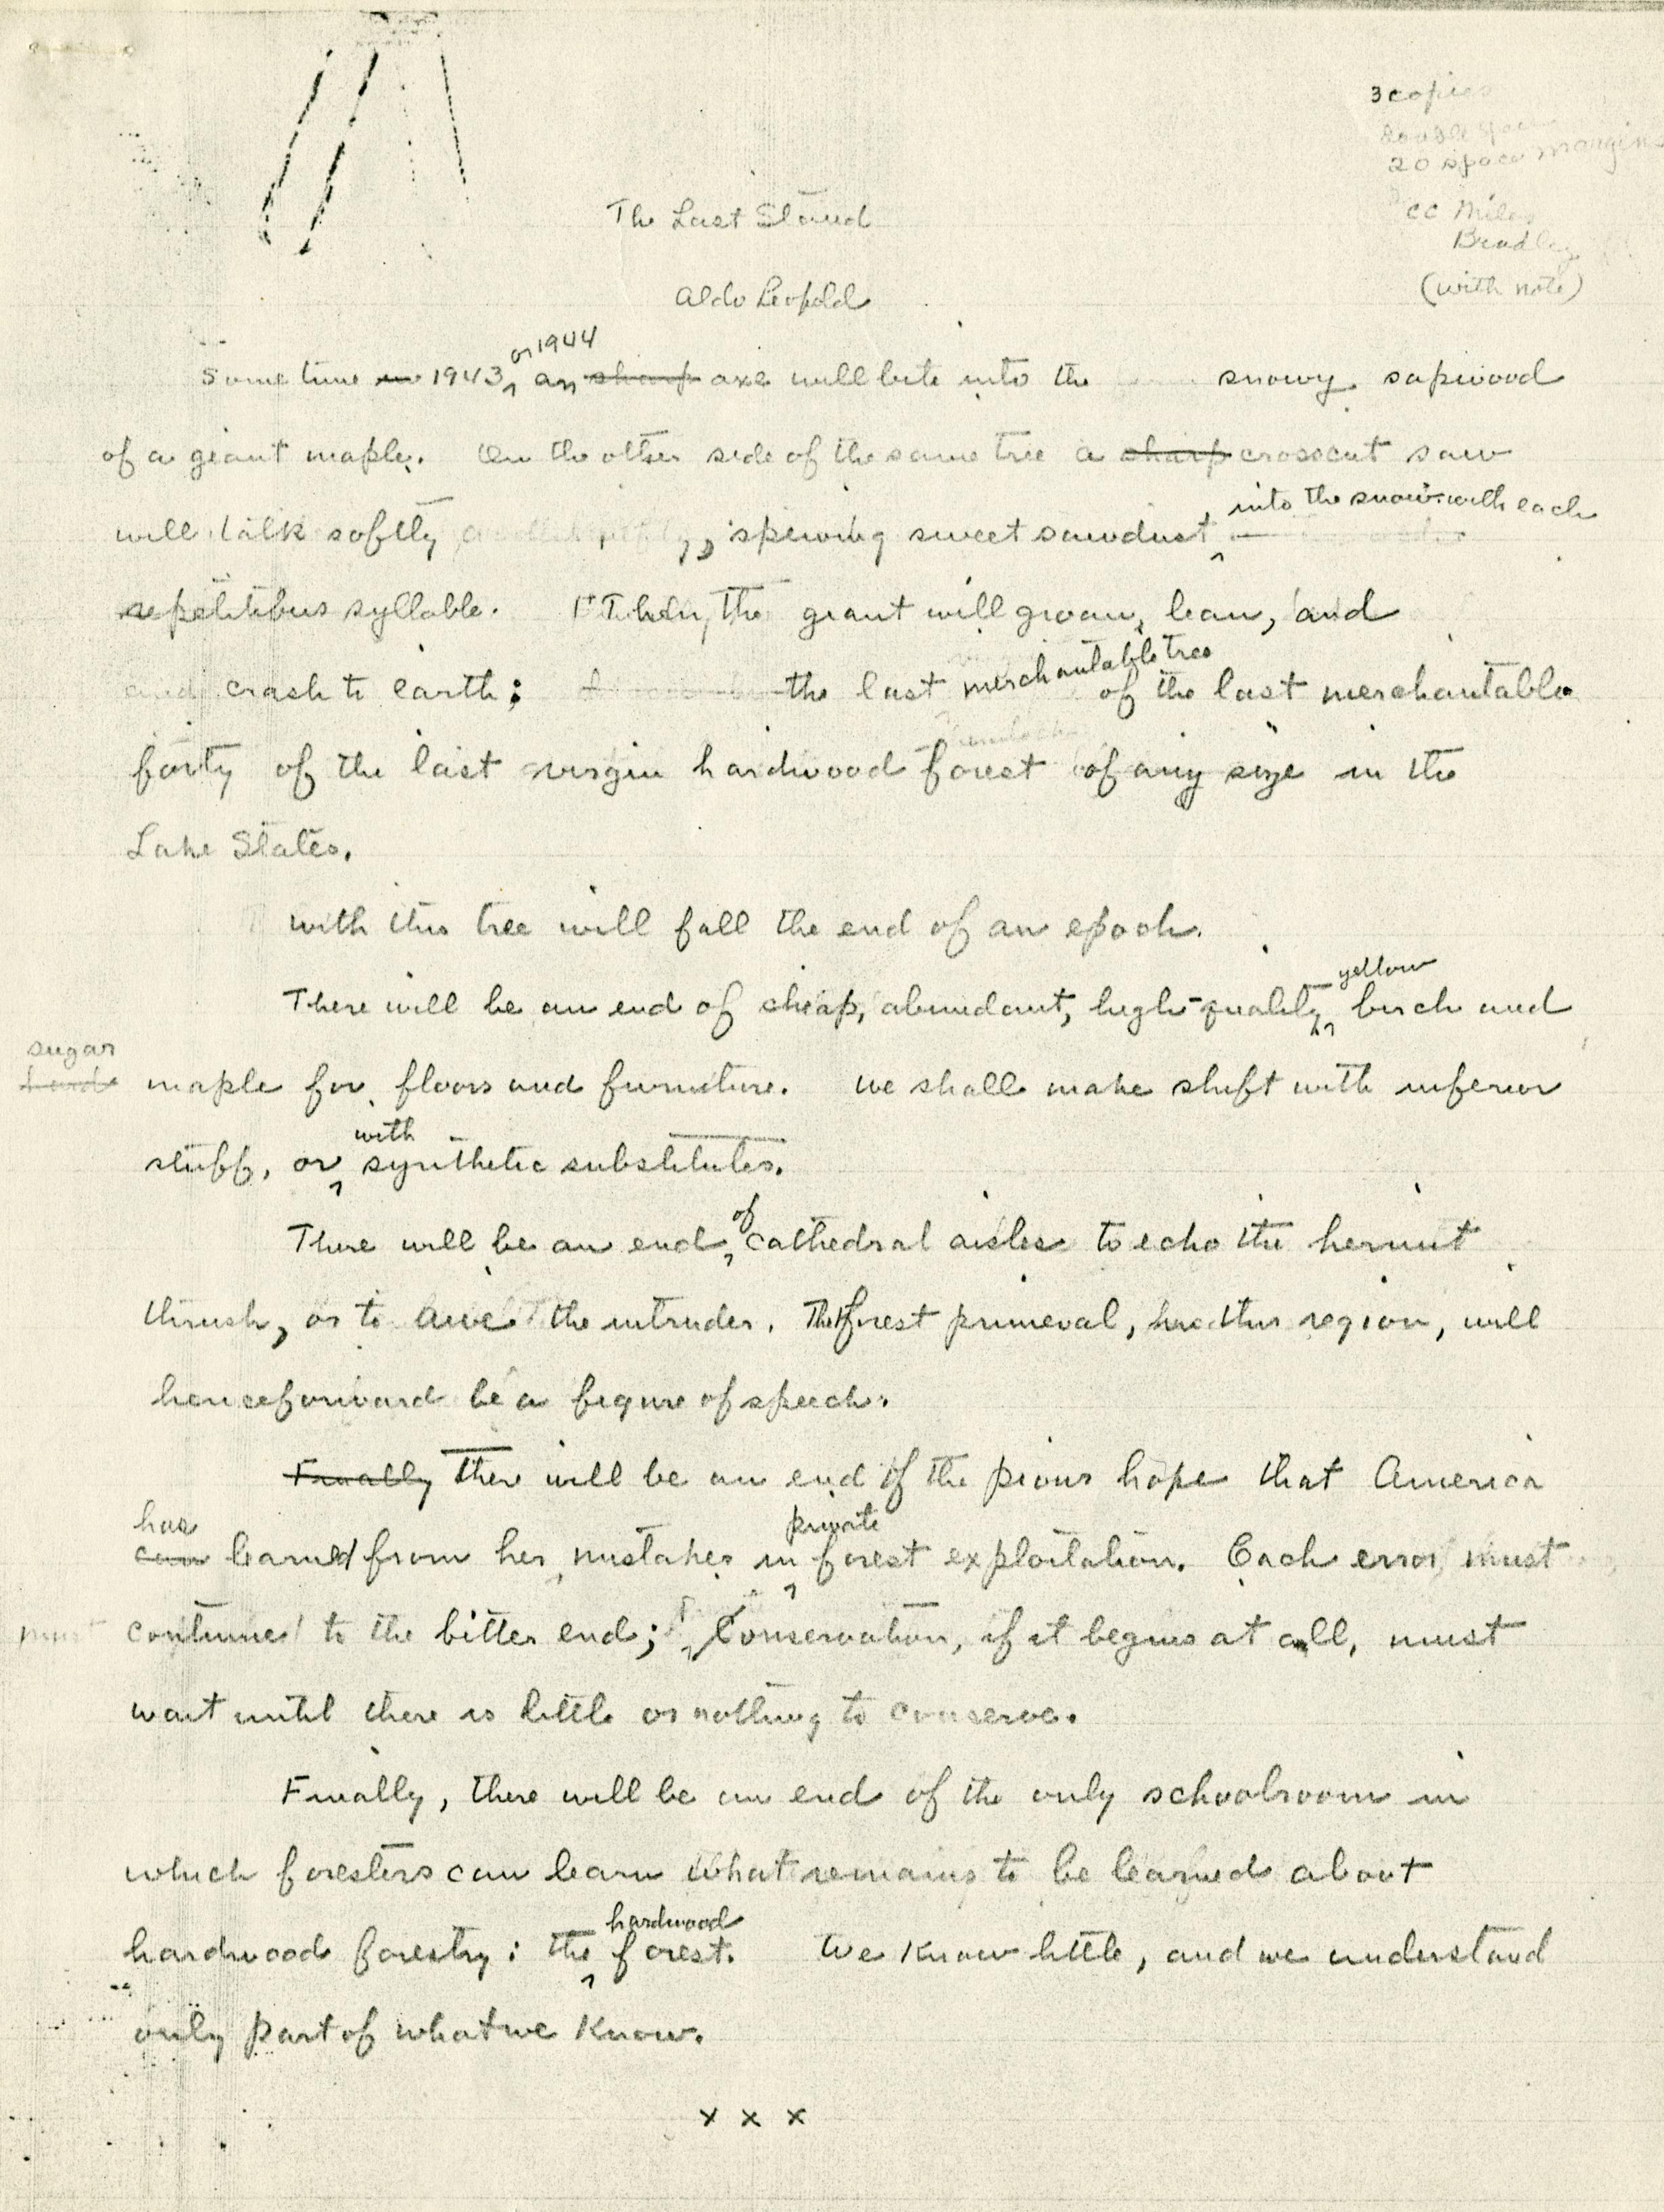 3 copies
double space
20 space margins
cc Miles
Bradley
(with note)
The Last Stand
Aldo Leopold
or 1944
Some time in 1943, an sharp axe will bite into the snowy sapwood
of a giant maple. On the other side of the same tree a sharp crosscut saw
into the snow with each
will talk softly, spewing sweet sawdust
repetitious syllable. Then, the giant will groan, lean, and
merchantable tree
and crash to earth; the last of the last merchantable
hemlock
forty of the last virgin hardwood forest of any size in the
Lake States.
With this tree will fall the end of an epoch.
yellow
There will be an end of cheap, abundant, high-quality birch and
sugar
hard maple for floors and furniture. We shall make shift with inferior
with
stuff, or synthetic substitutes.
of
There will be an end cathedral aisles to echo the hermit
thrush, or to awe the intruder. The forest primeval, in this region, will
henceforward be a figure of speech.
Finally There will be an end of the pious hope that America
has private
can learned from her mistakes in forest exploitation. Each error must
must continue to the bitter end; Conservation, if it begins at all, must
wait until there is little or nothing to conserve.
Finally, there will be an end of the only schoolroom in
which foresters can learn what remains to be learned about
hardwood
hardwood forestry: the forest. We know little, and we understand
only part of what we know.
x x x